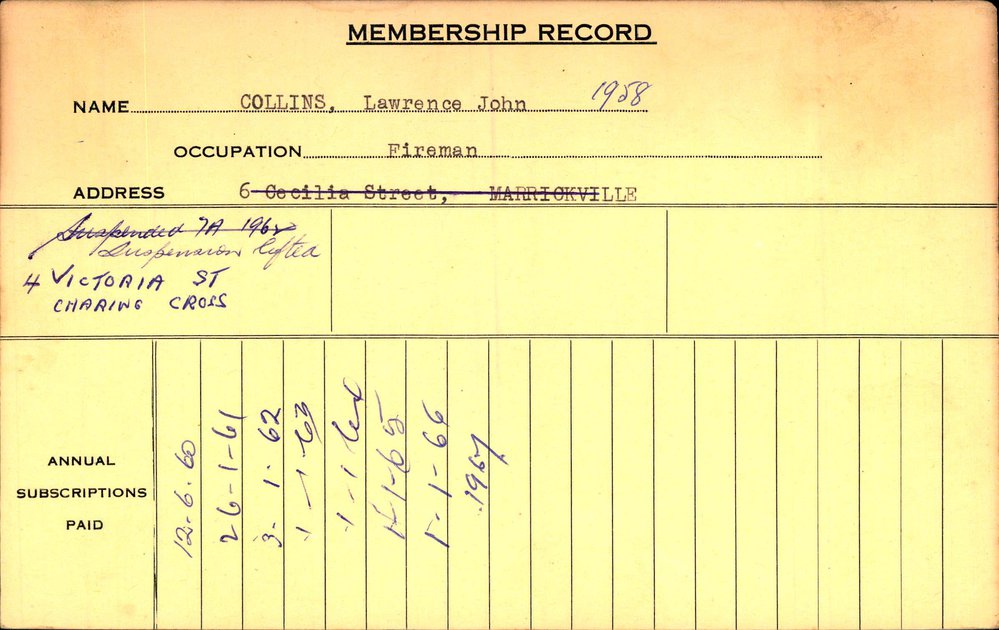 MEMBERSHIP RECORD
NAME COLLINS, Lawrence John 1958
OCCUPATION Fireman
ADDRESS 6 Cecilia Street, MARRICKVILLE
Suspended 7A 1962
Suspension lifted
4 VICTORIA ST
CHARING CROSS
ANNUAL
SUBSCRIPTIONS
PAID
12-6-60
26-1-61
3-1-62
1-1-63
1-1-64
1-65
1-1-66
1967